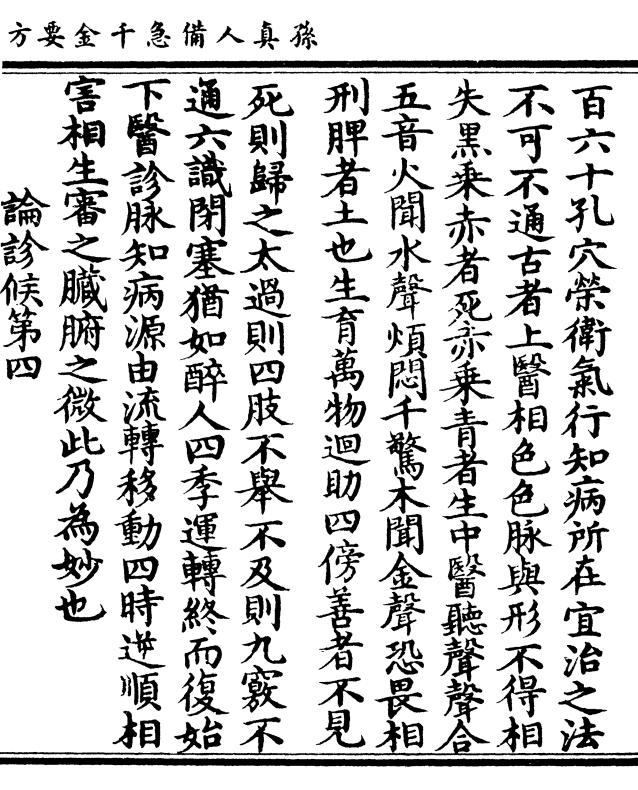 孫真人備急千金要方
百六十孔穴榮衛氣行知病所在宜治之法
不可不通古者上醫相色色脉與形不得相
失黒乗赤者死赤乗青者生中醫聽聲聲合
五音火聞水聲煩悶千驚木聞金聲恐畏相
刑脾者土也生育萬物迴助四傍善者不見
死則歸之太過則四肢不舉不及則九竅不
通六識閉塞猶如醉人四季運轉終而復始
下醫診脉知病源由流轉移動四時逆順相
害相生審之臓腑之微此乃為妙也
論診候第四